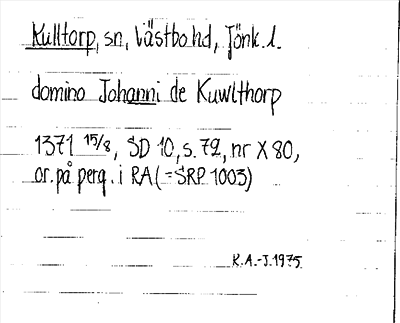 Kulltorp, sn, Västbo hd, Jönk. l.
domino Johanni de Kuwlthorp
1371 15/8, SD 10, s. 72, nr X 80,
or. på perg. i RA (= SRP 1003)
R.A.-J. 1975